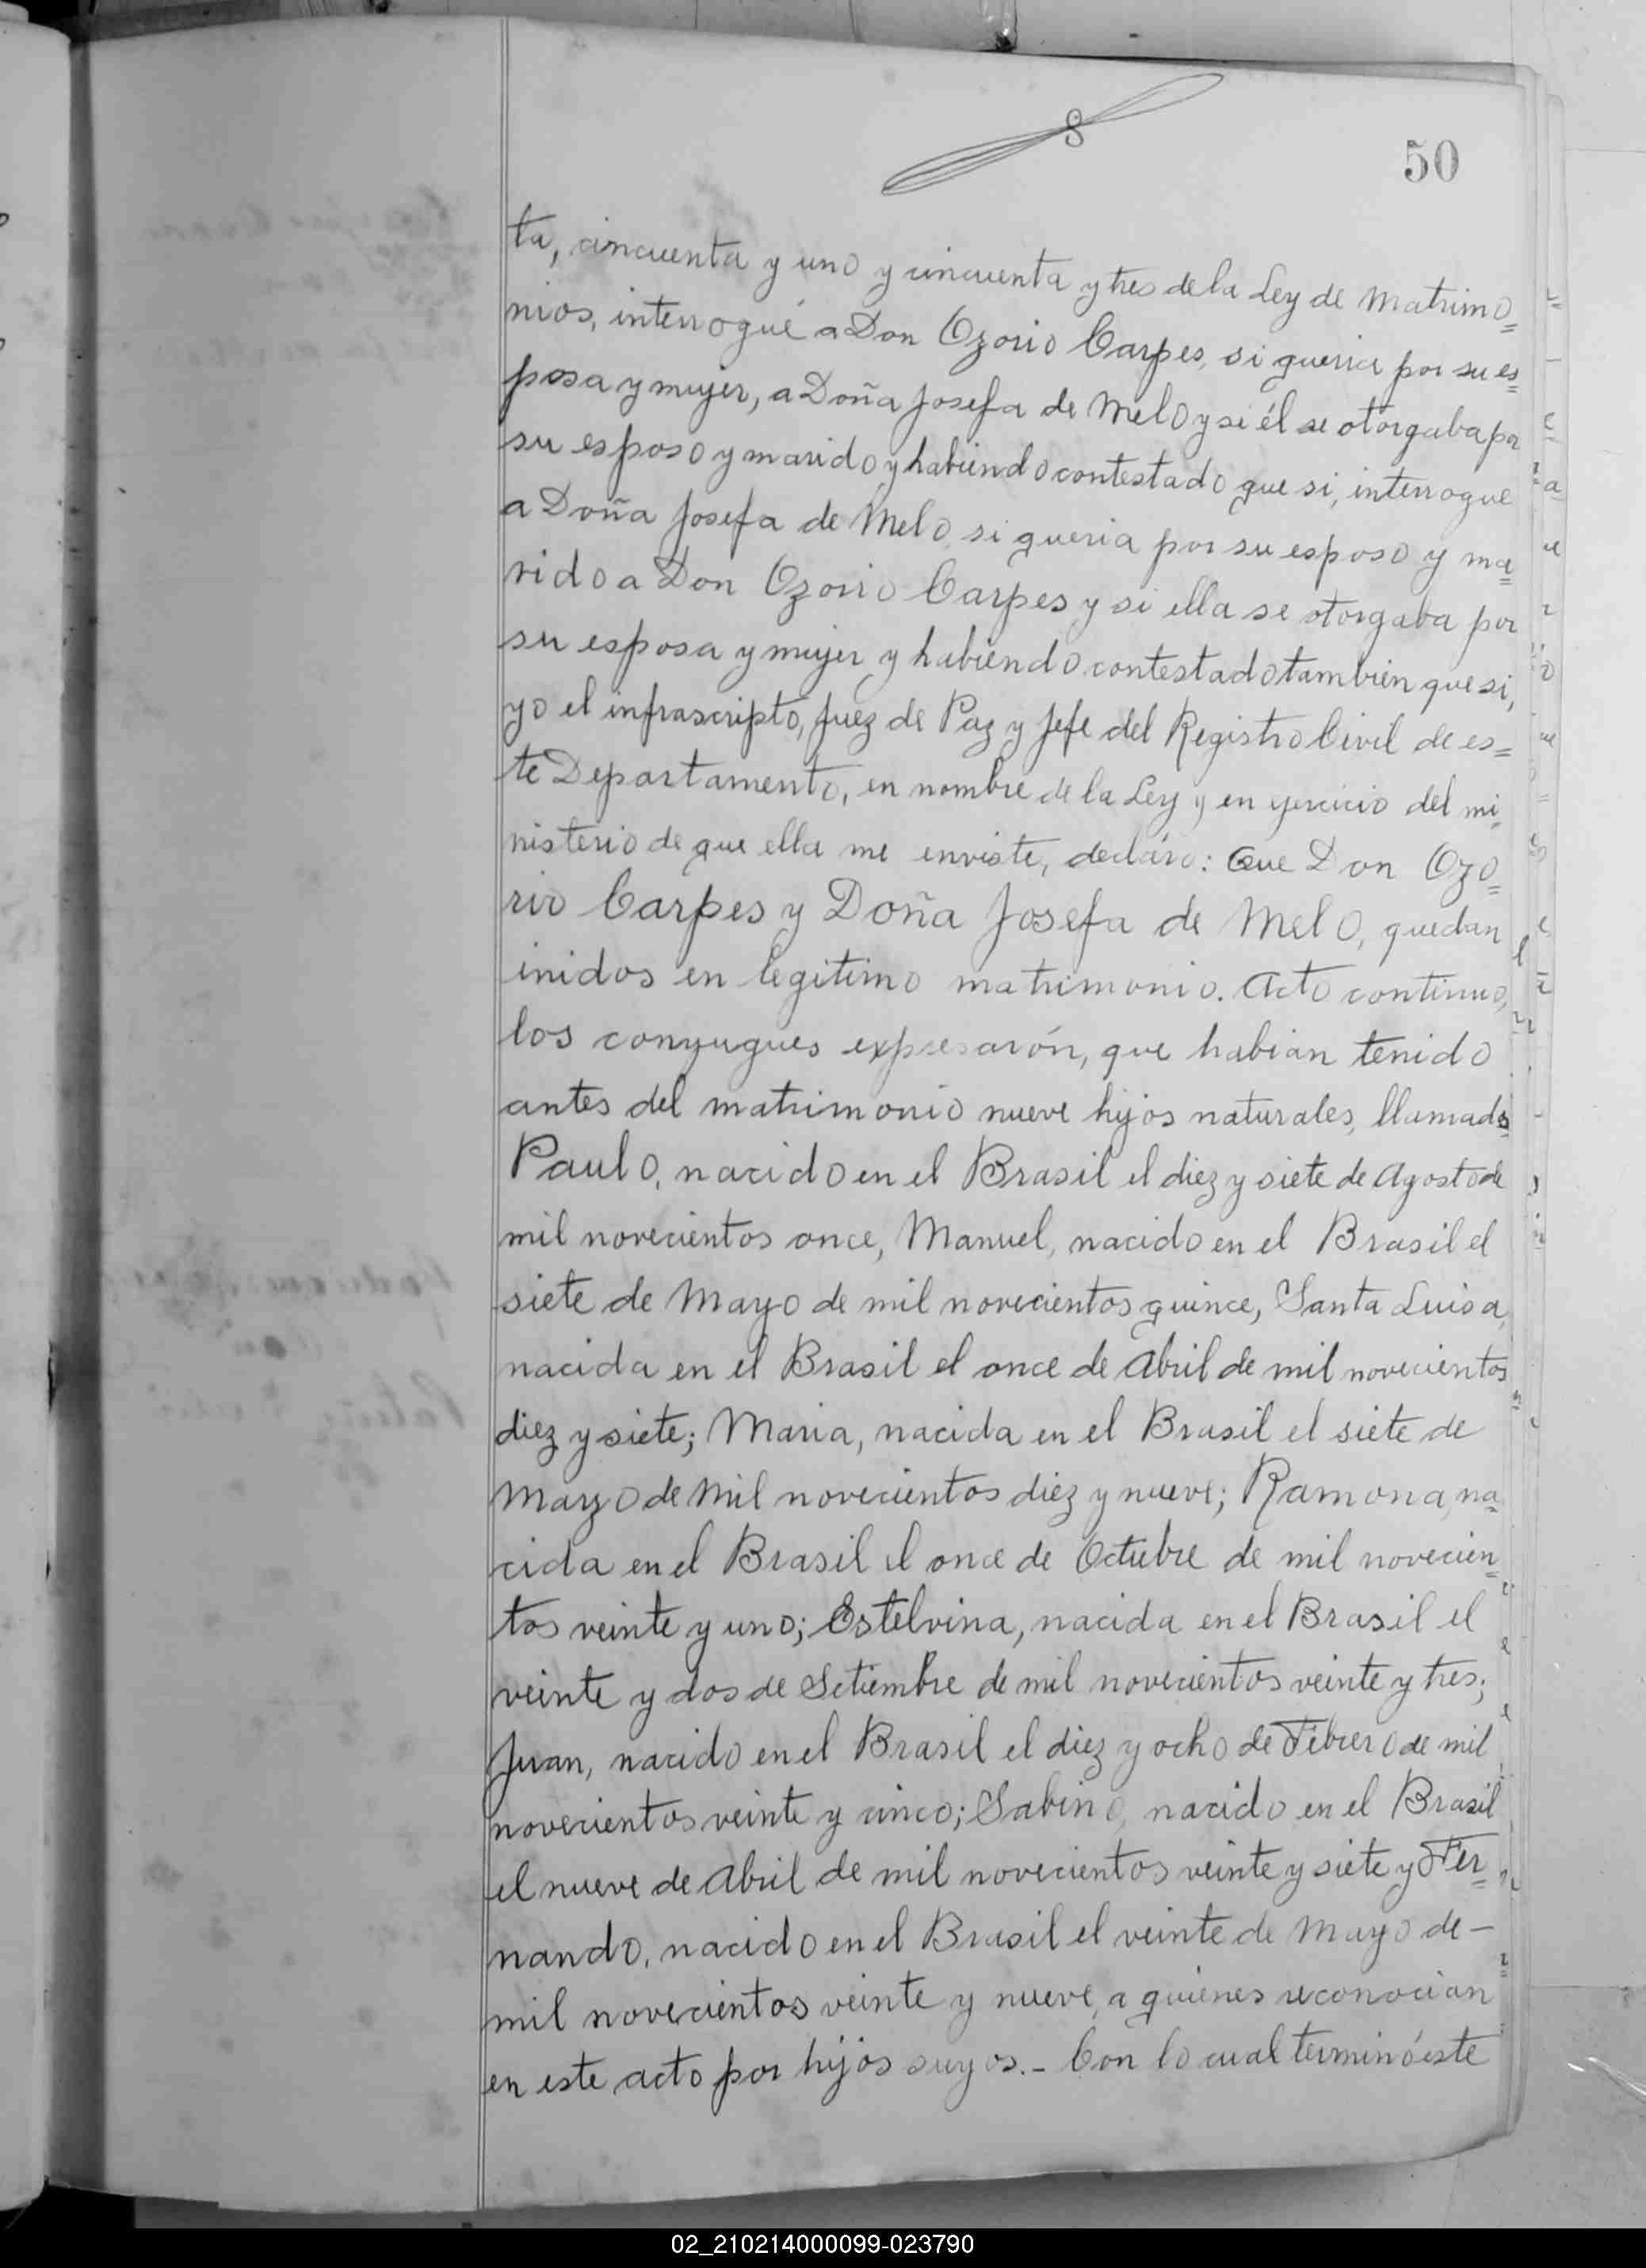 8
50
ta, cincuenta y uno y cincuenta y tres de la Ley de Matrimo=
nios, interrogué a Don Ozorio Carpes, si queria por su es=
posa y mujer, a Doña Josefa de Melo y si él se otorgaba por
su esposo y marido y habiendo contestado que si, interrogue
a Doña Josefa de Melo si queria por su esposo y ma=
rido a Don Ozorio Carpes y si ella se otorgaba por
su esposa y mujer y habiendo contestado tambien que si,
yo el infrascripto, Juez de Paz y Jefe del Registro Civil de es=
te Departamento, en nombre de la Ley y en ejercicio del mi=
nisterio de que ella me enviste, decláro: Que Don Ozo=
rio Carpes y Doña Josefa de Melo, quedan
inidos en legitimo matrimonio. Acto continuo,
los conyugues expresarón, que habian tenido
antes del matrimonio nueve hijos naturales, llamados
Paulo, nacido en el Brasil el diez y siete de Agosto de
mil novecientos once, Manuel, nacido en el Brasil el
siete de Mayo de mil novecientos quince, Santa Luisa,
nacida en el Brasil el once de Abril de mil novecientos
diez y siete; Maria, nacida en el Brasil el siete de
Marzo de Mil novecientos diez y nueve; Ramona, na=
cida en el Brasil el once de Octubre de mil novecien=
tos veinte y uno; Estelvina, nacida en el Brasil el
veinte y dos de Setiembre de mil novecientos veinte y tres;
Juan, nacido en el Brasil el diez y ocho de Febrero de mil
novecientos veinte y cinco; Sabino, nacido en el Brasil
el nueve de Abril de mil novecientos veinte y siete y Fer=
nando, nacido en el Brasil el veinte de Mayo de —
mil novecientos veinte y nueve, a quienes reconocian
en este acto por hijos suyos.- Con lo cual terminó éste
02_210214000099-023790